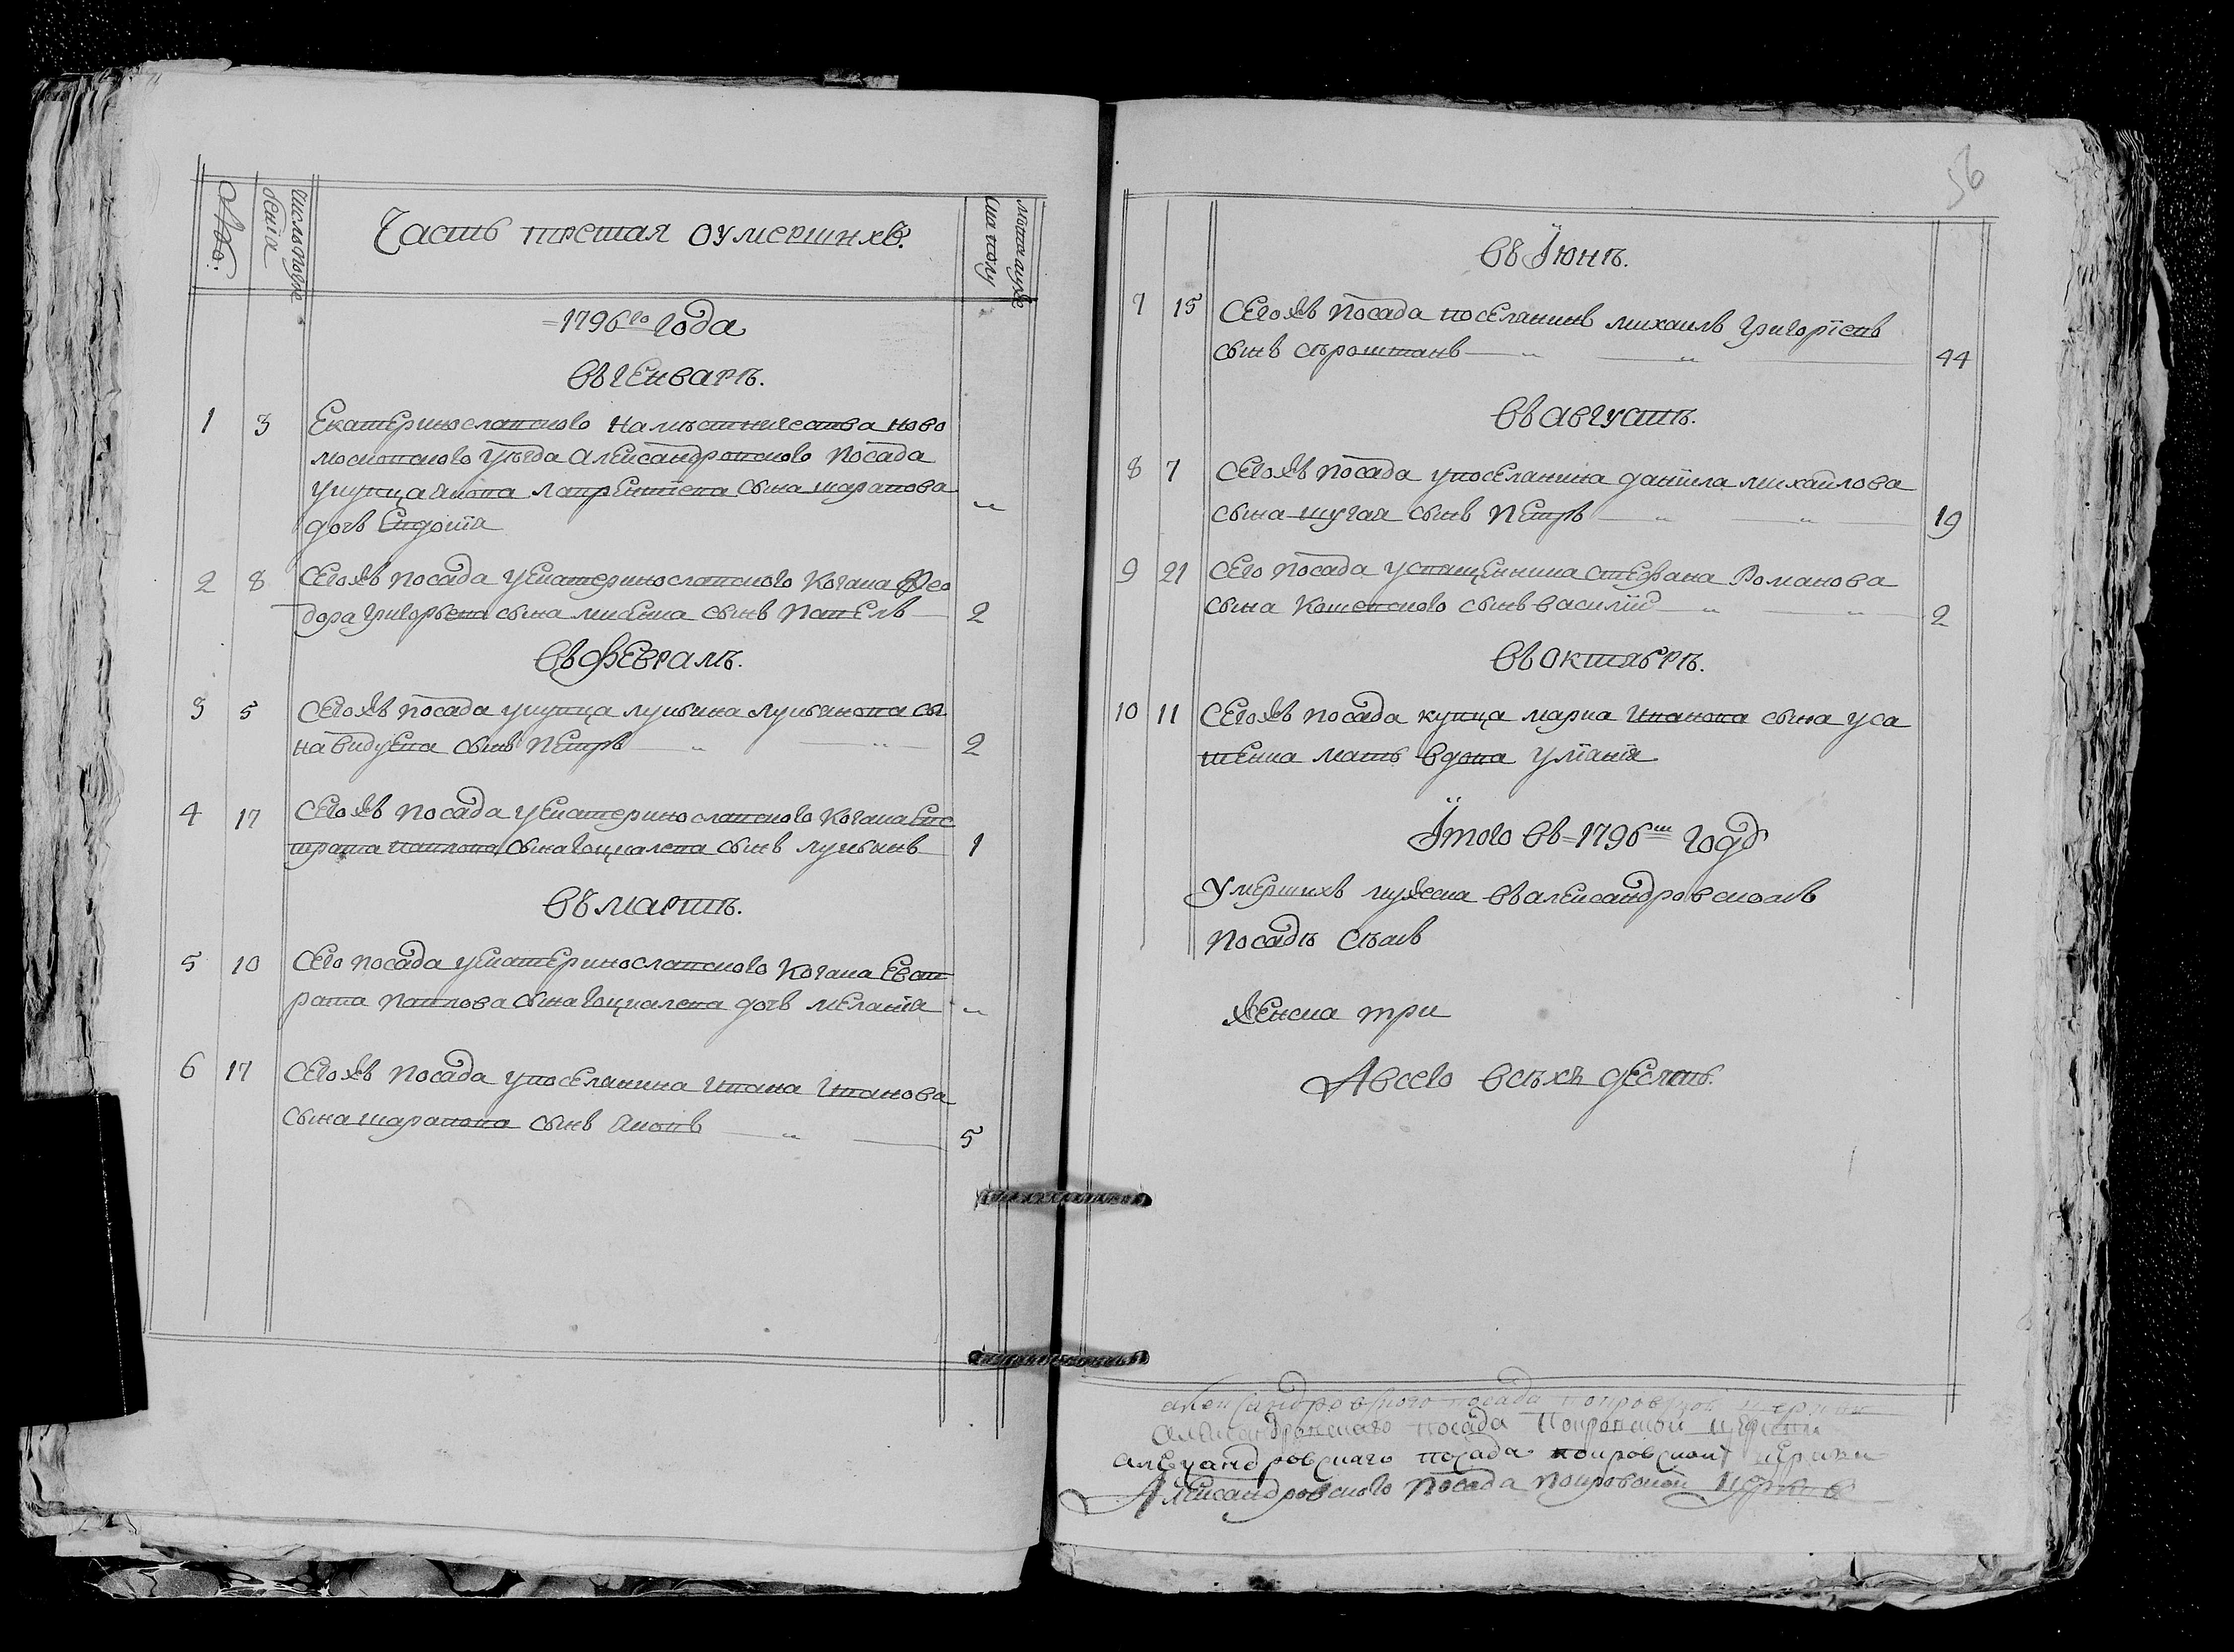 №
число погребенія
Часть третая оумершихъ.
мужеска полу
=1796го Года
въ Генваръ.
1 3 Екатеринославского Намъстничества ново
московского уъзда Александровского Посада
укупца Якова Лаврентіева сына шарапова
дочъ Евдокія "
2 8 сегожъ посада уекатеринославского козака Фео
дора Григорьева сына сынъ Павелъ 2
въ Февралъ.
3 5 Сегожъ посада укупца лукъяна лукъянова сы
на сынъ Петръ 2
4 17 Сегожъ посада уекатеринославского козака Евс
трата павлова сына сынъ лукъянъ 1
въ мартъ.
5 10 Сего посада уекатеринославского козака Евст
рата Павлова сына дочъ меланія "
6 17 Сегожъ посада упоселянина ивана иванова
сына шарапова сынъ Яковъ 5
56
въ Їюнъ.
7 15 Сегожъ посада поселянинъ михаилъ Григорїевъ
сынъ 44
въ августъ.
8 7 Сегожъ посада упоселянина даніила михаилова
сына сынъ Петръ 19
9 21 Сего посада усвященника стефана Романова
сына сынъ василій 2
въ октябръ.
10 11 Сегожъ посада купца марка иванова сына уса
тенка мать вдова уліанія
Їтого въ=1796м году
умершихъ мужеска въ александровскомъ
посадъ съмъ
женска три
А всего всъхъ десять.
александровского посада покровской церкви
Александровскаго посада Покровской церкви
александровскаго посада покровской церкви
Александровского посада покровской церкви